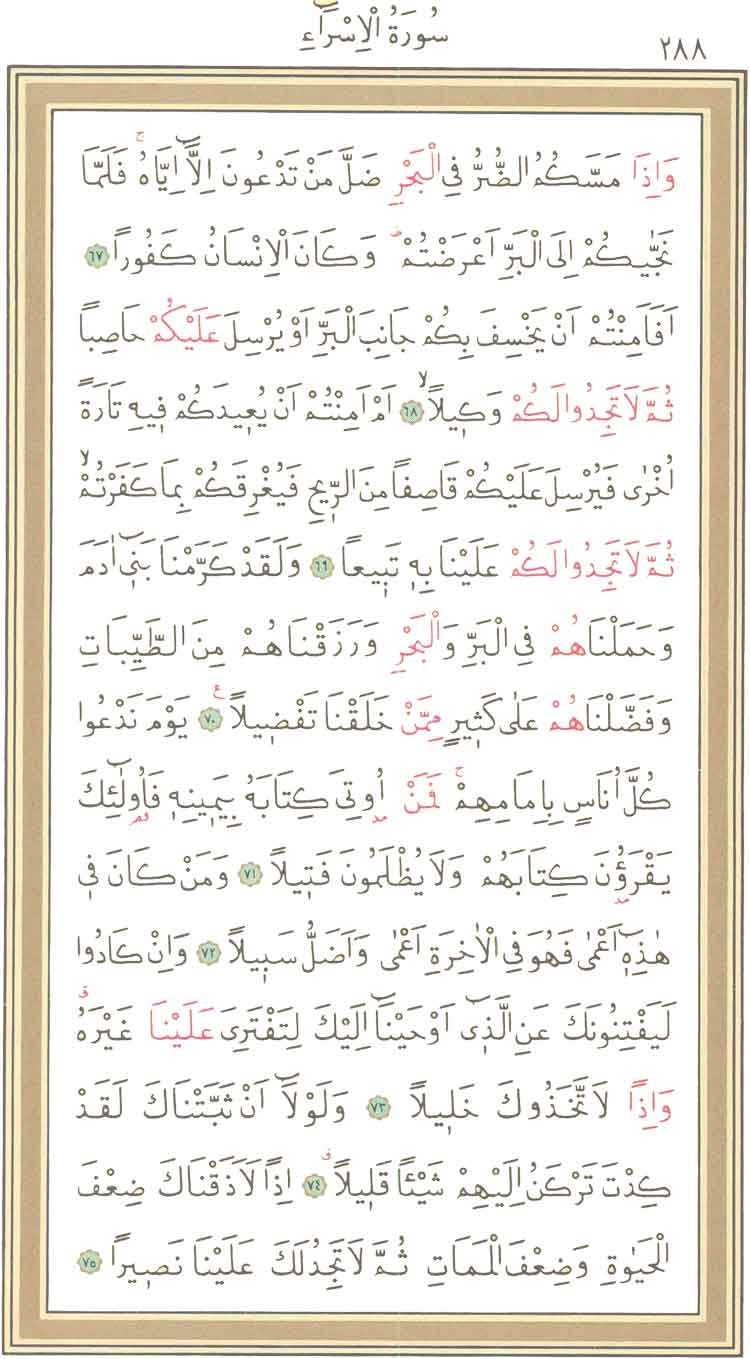 سُورَةُ الْاِسْرَٓاءِ
٢٨٨
وَاِذَا مَسَّكُمُ الضُّرُّ فِي الْبَحْرِ ضَلَّ مَنْ تَدْعُونَ اِلَّٓا اِيَّاهُۚ فَلَمَّا
نَجّٰيكُمْ اِلَى الْبَرِّ اَعْرَضْتُمْۜ وَكَانَ الْاِنْسَانُ كَفُوراً ﴿٦٧﴾
اَفَاَمِنْتُمْ اَنْ يَخْسِفَ بِكُمْ جَانِبَ الْبَرِّ اَوْ يُرْسِلَ عَلَيْكُمْ حَاصِباً
ثُمَّ لَا تَجِدُوا لَكُمْ وَك۪يلاًۙ ﴿٦٨﴾ اَمْ اَمِنْتُمْ اَنْ يُع۪يدَكُمْ ف۪يهِ تَارَةً
اُخْرٰى فَيُرْسِلَ عَلَيْكُمْ قَاصِفاً مِنَ الرّ۪يحِ فَيُغْرِقَكُمْ بِمَا كَفَرْتُمْۙ
ثُمَّ لَا تَجِدُوا لَكُمْ عَلَيْنَا بِه۪ تَب۪يعاً ﴿٦٩﴾ وَلَقَدْ كَرَّمْنَا بَن۪ٓي اٰدَمَ
وَحَمَلْنَاهُمْ فِي الْبَرِّ وَالْبَحْرِ وَرَزَقْنَاهُمْ مِنَ الطَّيِّبَاتِ
وَفَضَّلْنَاهُمْ عَلٰى كَث۪يرٍ مِمَّنْ خَلَقْنَا تَفْض۪يلاً۟ ﴿٧٠﴾ يَوْمَ نَدْعُوا
كُلَّ اُنَاسٍ بِاِمَامِهِمْۚ فَمَنْ اُو۫تِيَ كِتَابَهُ بِيَم۪ينِه۪ فَاُو۬لٰٓئِكَ
يَقْرَؤُ۫نَ كِتَابَهُمْ وَلَا يُظْلَمُونَ فَت۪يلاً ﴿٧١﴾ وَمَنْ كَانَ ف۪ي
هٰذِه۪ٓ اَعْمٰى فَهُوَ فِي الْاٰخِرَةِ اَعْمٰى وَاَضَلُّ سَب۪يلاً ﴿٧٢﴾ وَاِنْ كَادُوا
لَيَفْتِنُونَكَ عَنِ الَّذ۪ٓي اَوْحَيْنَٓا اِلَيْكَ لِتَفْتَرِيَ عَلَيْنَا غَيْرَهُۗ
وَاِذاً لَاتَّخَذُوكَ خَل۪يلاً ﴿٧٣﴾ وَلَوْلَٓا اَنْ ثَبَّتْنَاكَ لَقَدْ
كِدْتَ تَرْكَنُ اِلَيْهِمْ شَيْـٔاً قَل۪يلاًۗ ﴿٧٤﴾ اِذاً لَاَذَقْنَاكَ ضِعْفَ
الْحَيٰوةِ وَضِعْفَ الْمَمَاتِ ثُمَّ لَا تَجِدُ لَكَ عَلَيْنَا نَص۪يراً ﴿٧٥﴾